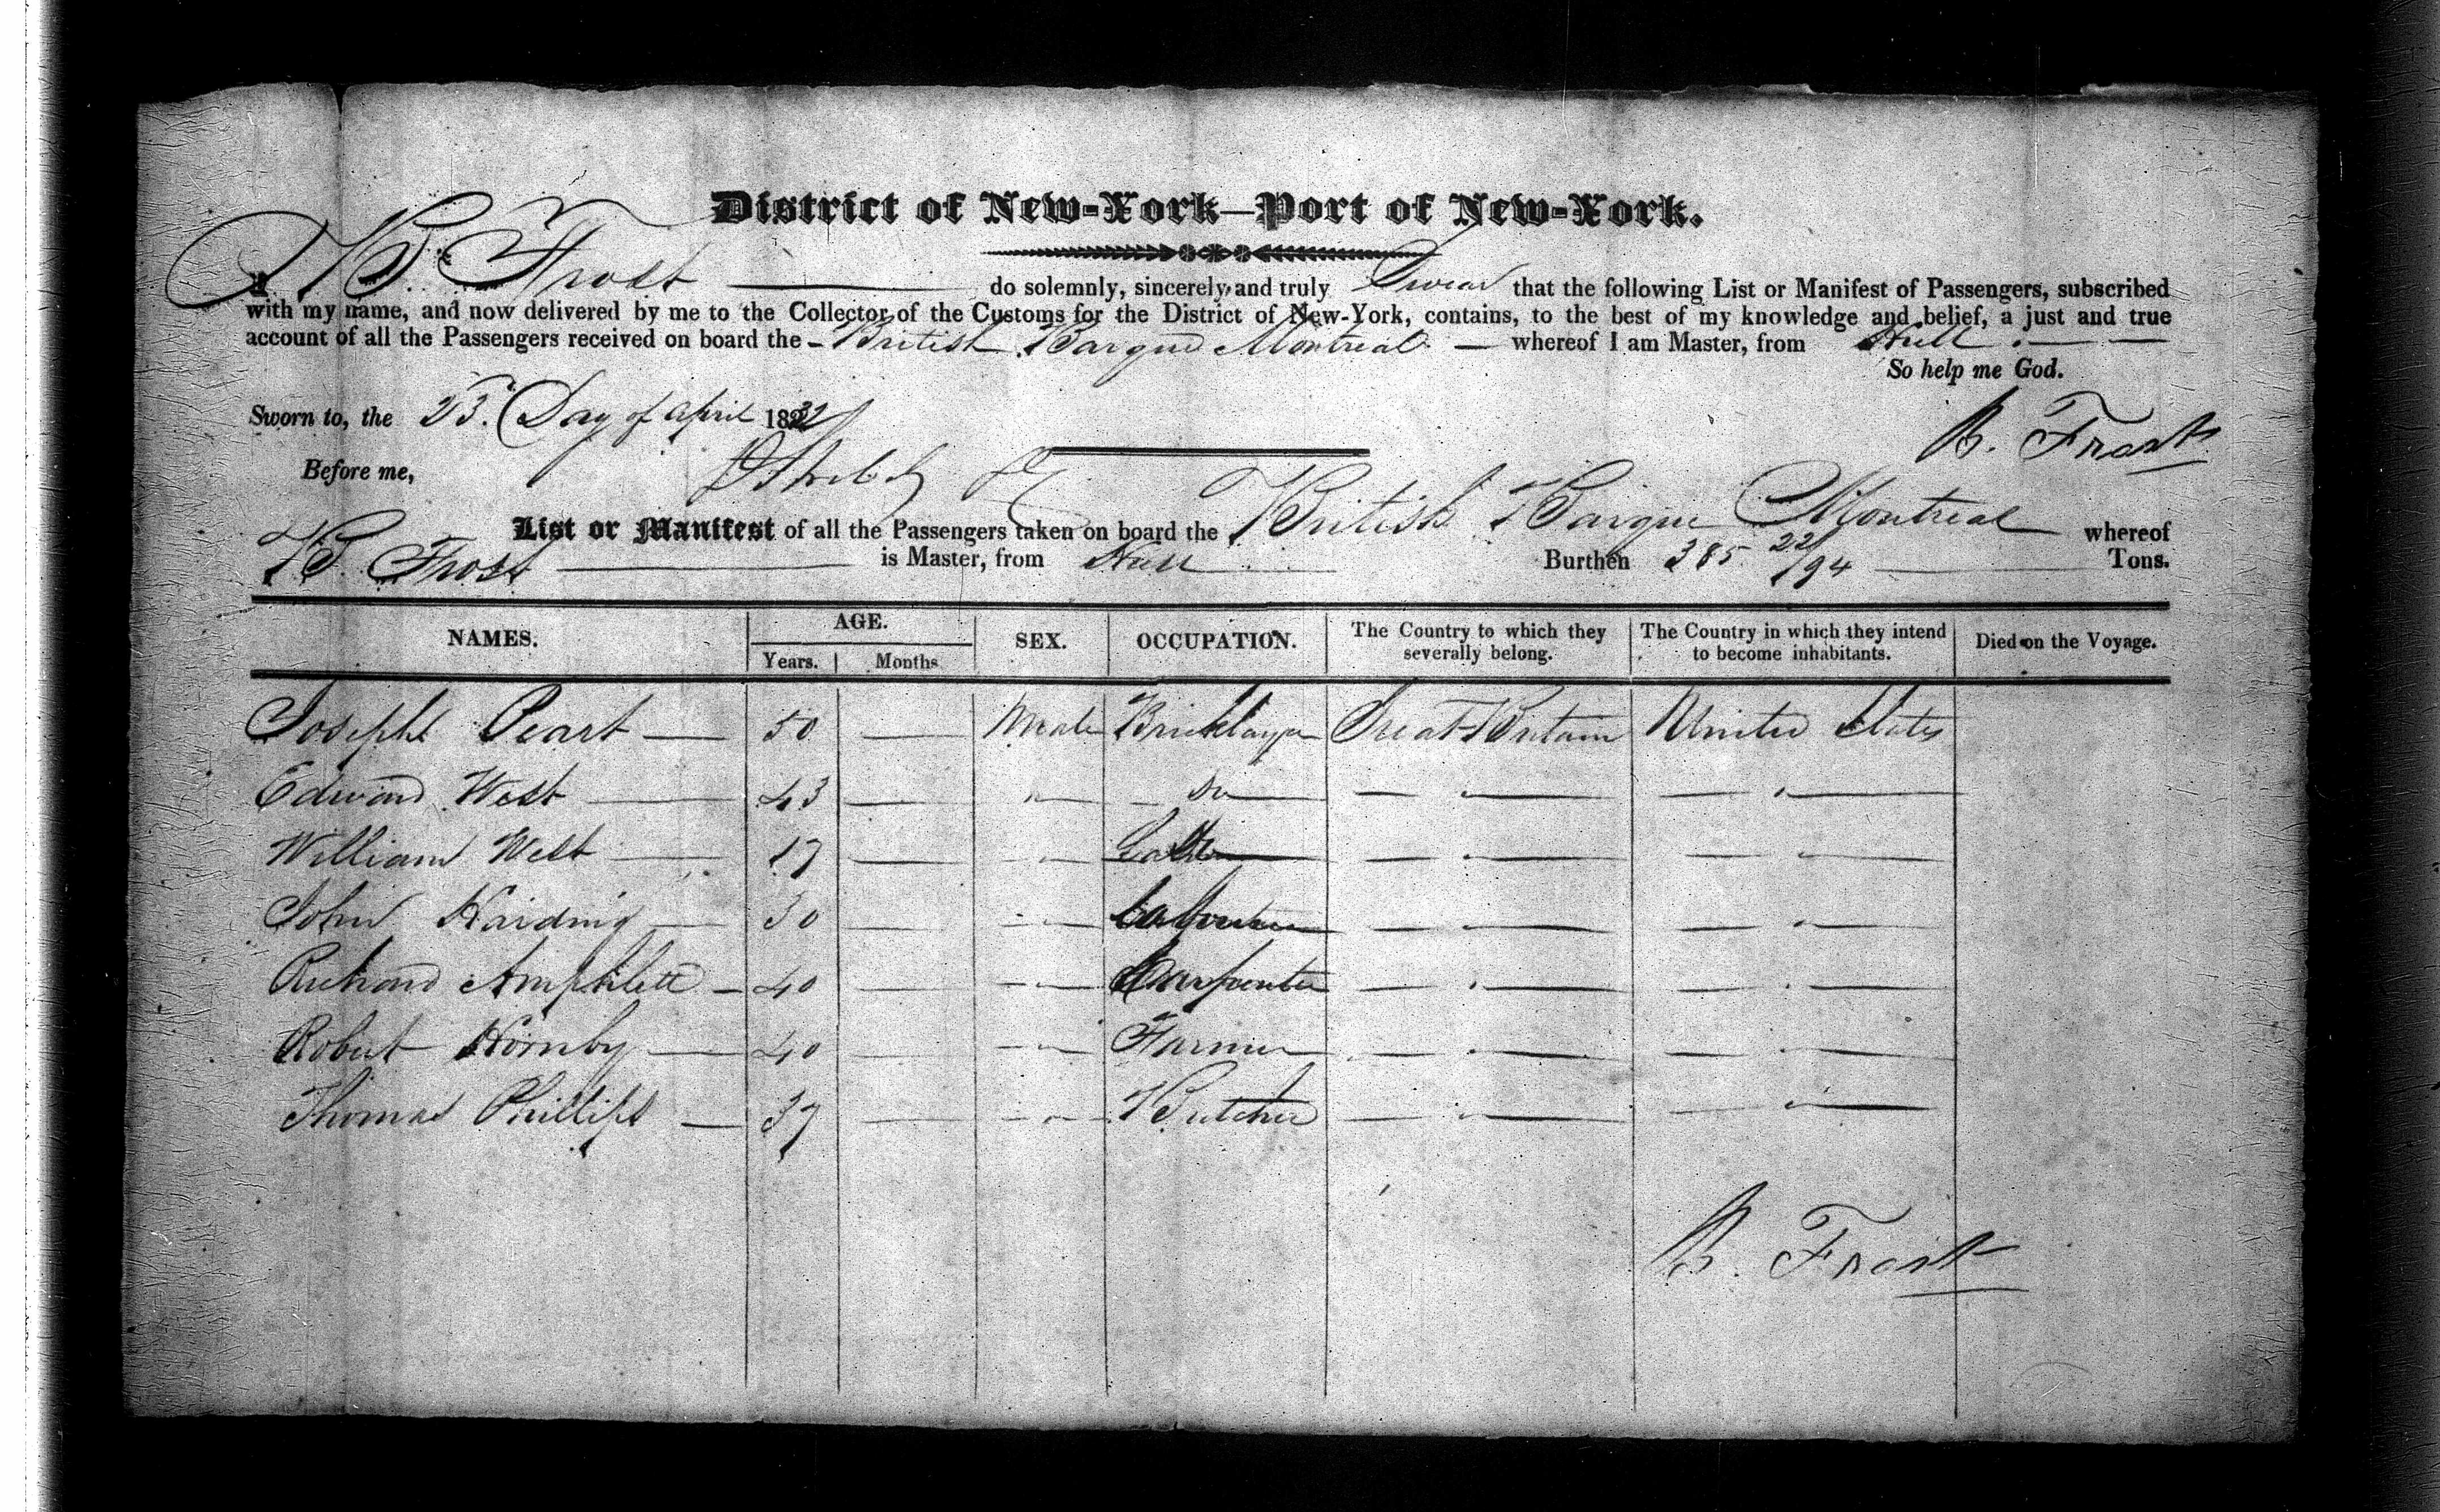 District of New-York—Port of New-York.
I B. Frost do solemnly, sincerely and truly Swear that the following List or Manifest of Passengers, subscribed
with my name, and now delivered by me to the Collector of the Customs for the District of New-York, contains, to the best of my knowledge and belief, a just and true
account of all the Passengers received on board the British Barque Montreal whereof I am Master, from Hull.
So help me God.
Sworn to, the 23. Day of april 1832
B. Frost
Before me,
List or Manifest of all the Passengers taken on board the British Barque Montreal whereof
B. Frost is Master, from Hull Burthen 385 22/94 Tons.
NAMES. AGE. SEX. OCCUPATION. The Country to which they severally belong. The Country in which they intend to become inhabitants. Died on the Voyage.
Years. Months
Joseph Peart — 50 — Male Bricklayer Great Britain United States
Edward West — 43 — " — Do — " — — " —
William West — 17 — " — " — — " —
John Harding — 30 — " — " — — " —
Richard Amphlett — 40 — " Carpenter — " — — " —
Robert Hornby — 40 — " Farmer — " — — " —
Thomas Phillips — 37 — " Butcher — " — — " —
B. Frost